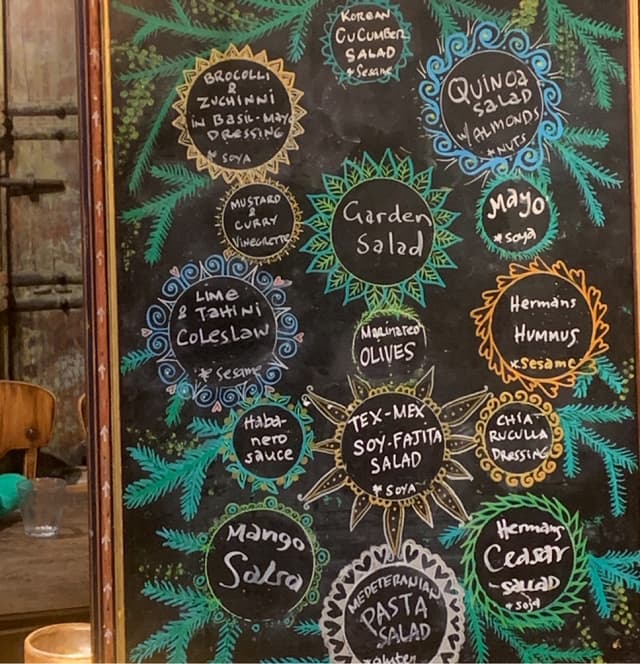 KOREAN
CUCUMBER
SALAD
*Sesame
BROCOLLI
&
ZUCHINNI
iN BASiL-MAYO
DRESSING
* SOYA
QUiNOA
SALAD
W/ ALMONDS
*NUTS
MUSTARD
&
CURRY
ViNEGRETTE
Garden
Salad
MAYO
*Soya
LiME
& TAHiNi
COLESLAW
* Sesame
MARiNATED
OLIVES
Hermans
HUMMUS
*Sesame
Haba-
nero
sauce
TEX-MEX
SOY-FAJiTA
SALAD
*SOYA
CHiA-
RUCULLA
DRESSiNG
Mango
Salsa
MEDETERANiAN
PASTA
SALAD
*Gluten
Hermans
CEASAR
-SALLAD
*Soja